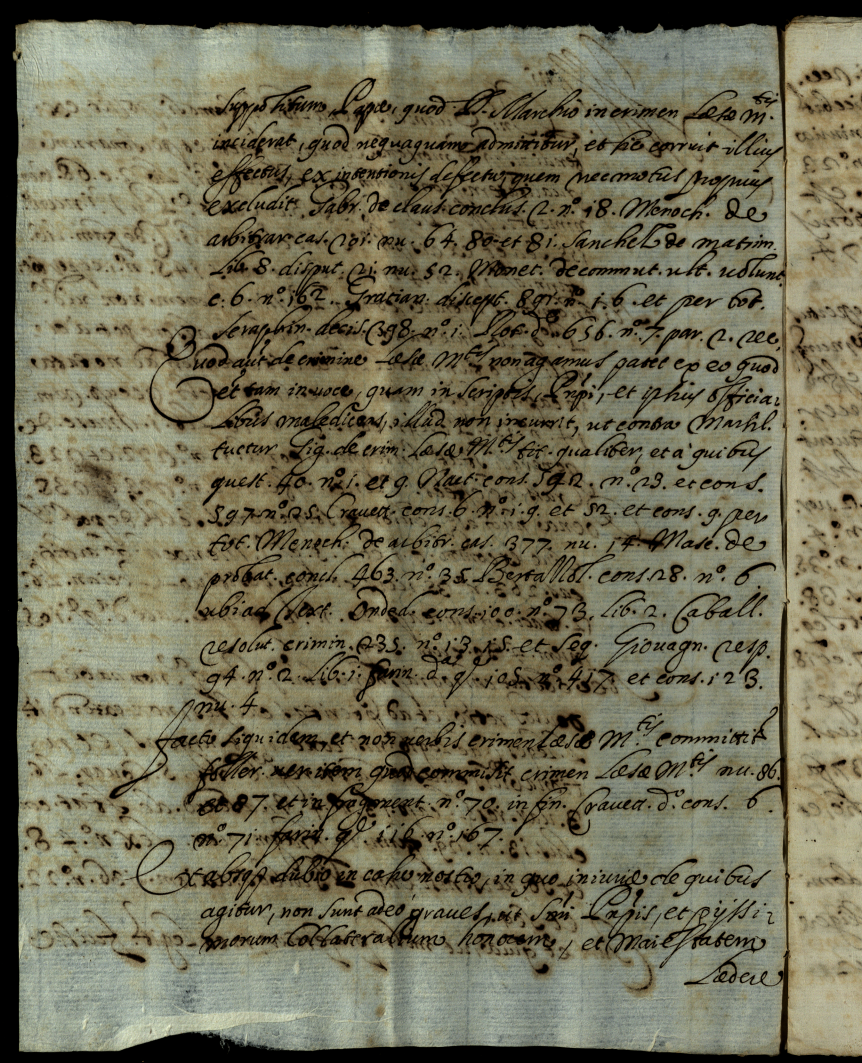 suppositum Papæ, quod D. Marchio in crimen Læsæ M.tis
inciderat, quod nequaquam admittitur, et sic corruit illius
effectus, ex intentionis defectu, quem nec motus proprius
excludit. Gabr. de claus. conclus. 2. nº. 18. Menoch. de
arbitrar. cas. 201. nu. 64. 80. et 81. Sanchez de matrim.
Lib. 8. disput. 21. nu. 52. Monet. de commut. ult. volunt.
c. 6. nº. 162. Gratian. discept. 891. nº. 1. 6. et per tot.
Seraphin. decis. 398. nº. 1. Rot. d. 656. nº. 7. par. 2. rec.
Quod aut de crimine Læsæ M.tis non agamus patet ex eo quod
et tam in voce, quam in scriptis, Pnpi, et ipsius officia-
libus maledicens, illud non incurrit, ut contra Marsil.
tuetur Gig. de crim. Læsæ M.tis tit. qualiter, et à quibus
quest. 40. nº. 1. et 9. Natt. cons. 592. nº. 23. et cons.
597. nº. 25. Cravett. cons. 6. nº. 1. 9. et 52. et cons. 9. per
tot. Menoch. de arbitr. cas. 377. nu. 14. Masc. de
probat. concl. 463. nº. 35. Bertazzol. cons. 28. nº. 6
ubi ad Text. Onded. cons. 100. nº. 73. Lib. 2. Caball.
resolut. crimin. 235. nº. 13. 15. et seq. Giovagn. resp.
94. nº. 2. Lib. 1. Farin. d. q. 105. nº. 417. et cons. 123.
nu. 4.
Facto siquidem, et non verbis crimen Læsæ M.tis committitr
foller. ver. item quod commisit crimen Læsæ M.tis nu. 86.
et 87. et in nº. 70. in fin. Cravett. d. cons. 6.
nº. 71. Farin. q. 116. nº. 167.
Et absq dubio in casu nostro, in quo iniuriæ de quibus
agitur, non sunt adeò graves, ut Smi Pnpis, et pijssi-
morum Collateralium honorem, et Maiestatem
Lædere